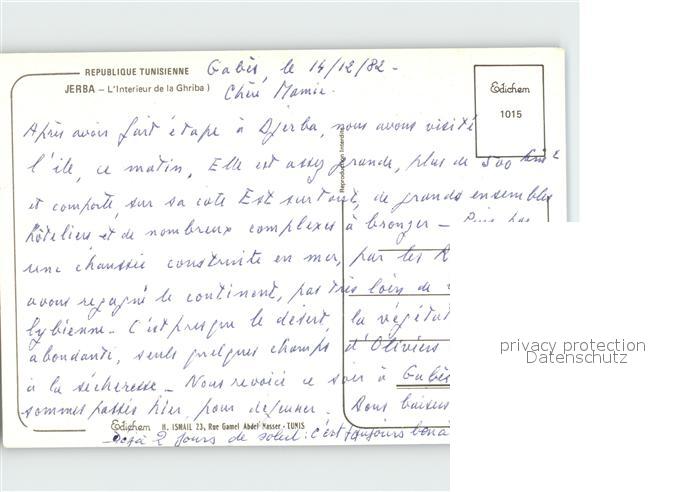 REPUBLIQUE TUNISIENNE
JERBA – L'Interieur de la Ghriba )
Gabès, le 14/12/82 -
Chère Mamie.
Edichem
1015
Après avoir fait étape à Djerba, nous avons visité
l'île, ce matin, Elle est assez grande, plus de 500 km²
et comporte, sur sa côte Est surtout, de grands ensembles
hôteliers, et de nombreux complexes à bronzer – Puis par
une chaussée construite en mer, par les
avons regagné le continent, pas très loin de
lybienne – C'est presque le désert, la végétat
abondante, seuls quelques champs d'Oliviers
à la sécheresse – Nous revoici ce soir à Gabès
sommes passés hier, pour déjeuner. Bons baisers
Edichem H. ISMAIL 23, Rue Gamel Abdel Nasser - TUNIS
– Déjà 2 jours de soleil : c'est toujours bon à
Reproduction Interdite
privacy protection
Datenschutz